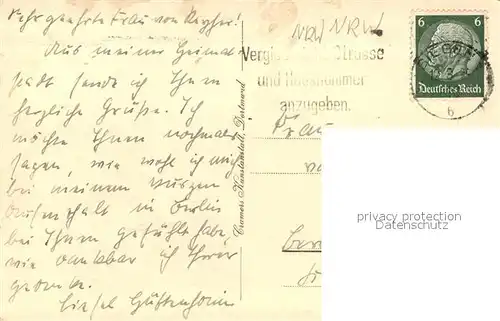 Sehr geehrte Frau von Reyher!
Aus meiner Heimat-
stadt sende ich Ihnen
herzliche Grüße. Ich
möchte Ihnen nochmals
sagen, wie wohl ich mich
bei meinem kurzen
Aufenthalt in Berlin
bei Ihnen gefühlt habe,
wie dankbar ich Ihrer
gedenke.
Liesel
Cramers Kunstanstalt, Dortmund
NRW NRW
Straße
und Hausnummer
anzugeben.
6 6
Deutsches Reich
b
Frau
privacy protection
Datenschutz